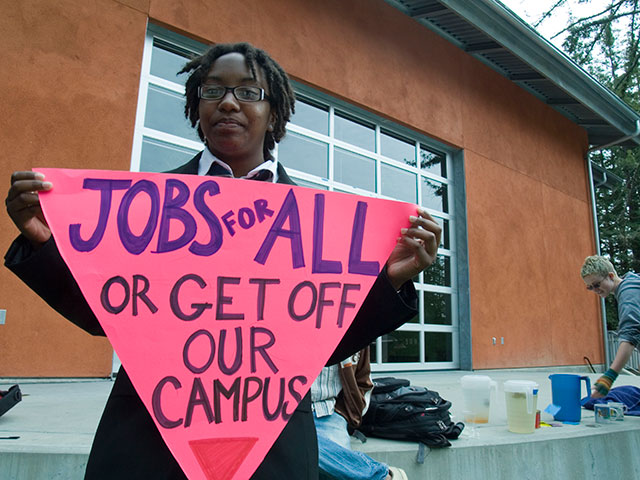 JOBS FOR ALL
OR GET OFF
OUR
CAMPUS